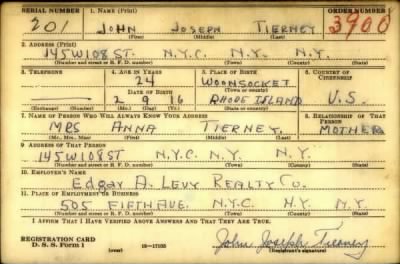 SERIAL NUMBER 1. NAME (Print) ORDER NUMBER
201 JOHN JOSEPH TIERNEY 3900
(First) (Middle) (Last)
2. ADDRESS (Print)
145 W 108 ST. N.Y.C. N.Y. N.Y.
(Number and street or R. F. D. number) (Town) (County) (State)
3. TELEPHONE 4. AGE IN YEARS 5. PLACE OF BIRTH 6. COUNTRY OF CITIZENSHIP
24 WOONSOCKET
DATE OF BIRTH (Town or county)
— 2 9 16 RHODE ISLAND U.S.
(Exchange) (Number) (Mo.) (Day) (Yr.) (State or country)
7. NAME OF PERSON WHO WILL ALWAYS KNOW YOUR ADDRESS 8. RELATIONSHIP OF THAT PERSON
MRS ANNA TIERNEY MOTHER
(Mr., Mrs., Miss) (First) (Middle) (Last)
9. ADDRESS OF THAT PERSON
145 W 108 ST N.Y.C. N.Y. N.Y.
(Number and street or R. F. D. number) (Town) (County) (State)
10. EMPLOYER'S NAME
Edgar A. Levy Realty Co.
11. PLACE OF EMPLOYMENT OR BUSINESS
505 FIFTH AVE. N.Y.C. N.Y. N.Y.
(Number and street or R. F. D. number) (Town) (County) (State)
I AFFIRM THAT I HAVE VERIFIED ABOVE ANSWERS AND THAT THEY ARE TRUE.
REGISTRATION CARD
D. S. S. Form 1 (over) 16—17105 John Joseph Tierney
(Registrant's signature)